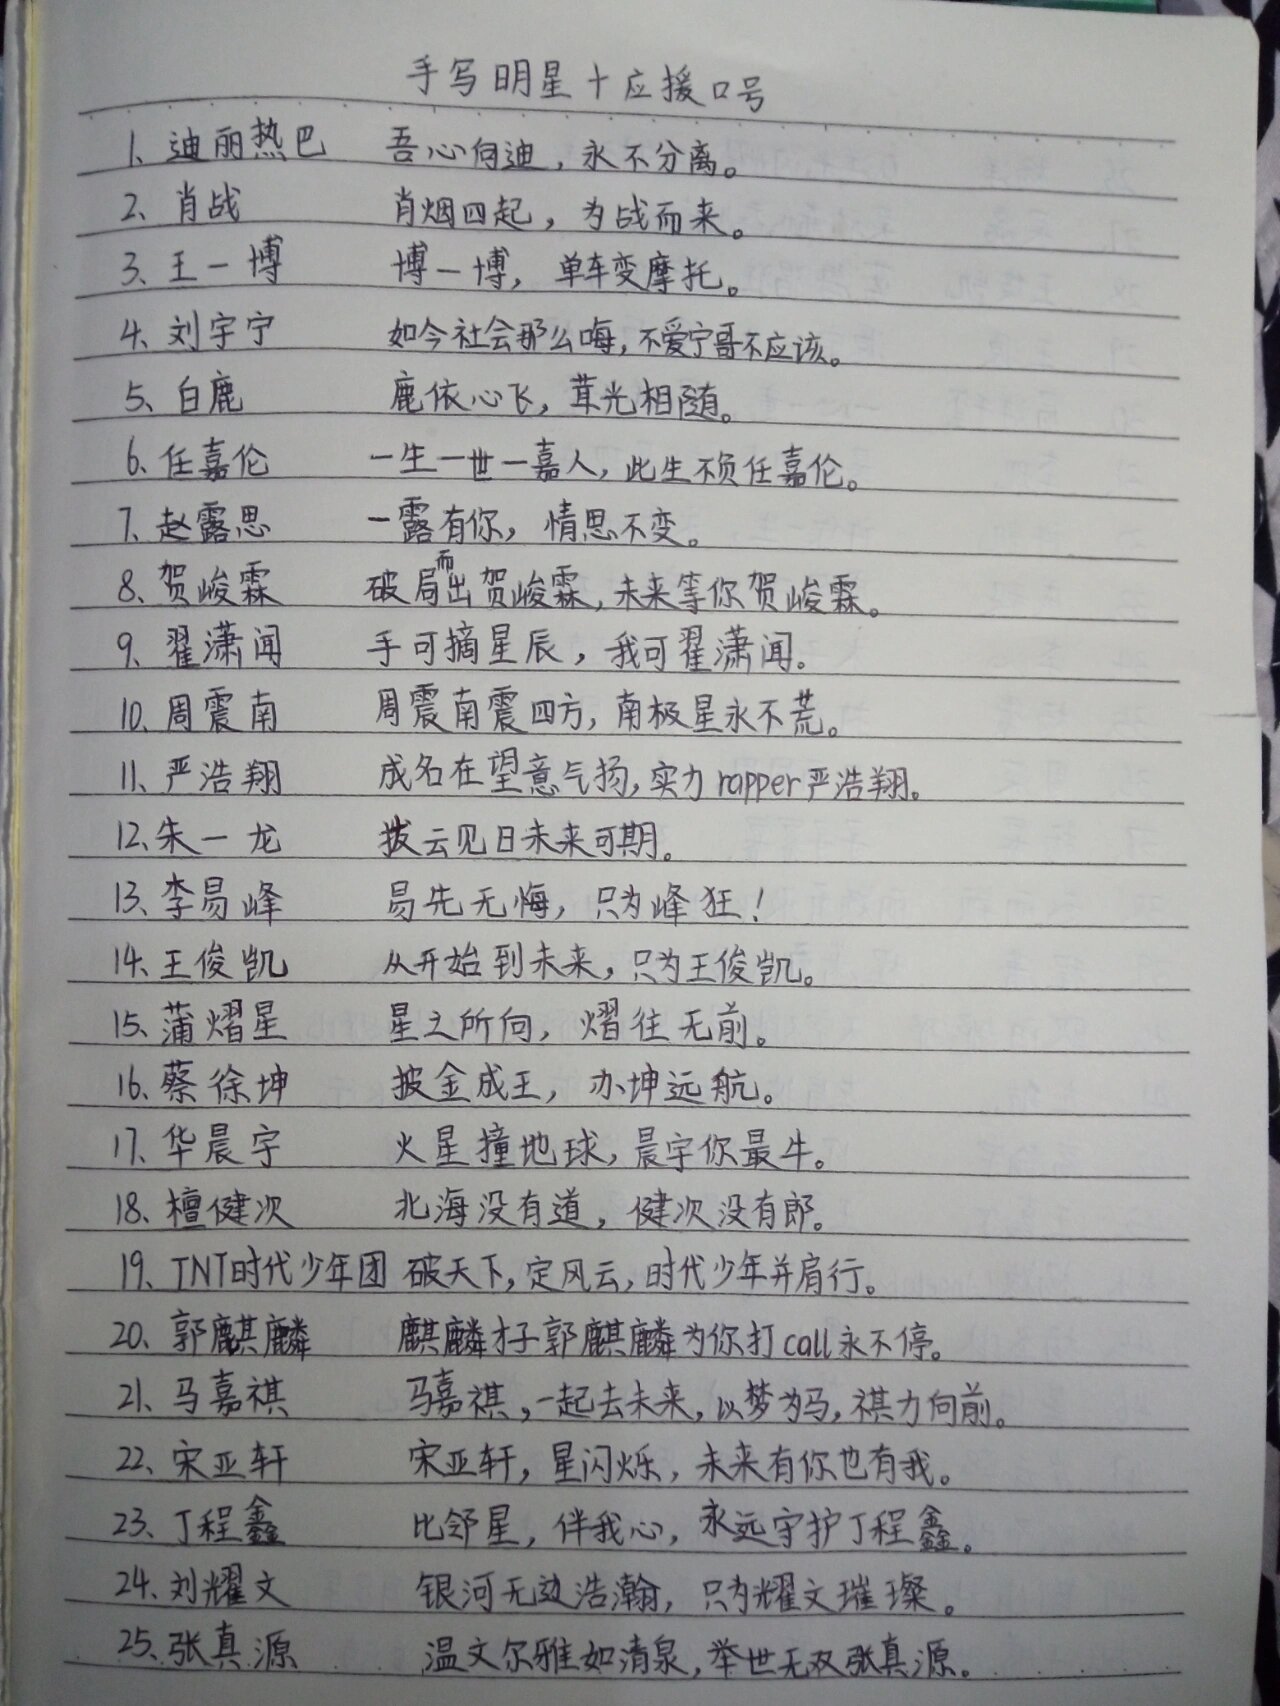 手写明星十应援口号
1、迪丽热巴 吾心向迪，永不分离。
2、肖战 肖烟四起，为战而来。
3、王一博 博一博，单车变摩托。
4、刘宇宁 如今社会那么嗨，不爱宁哥不应该。
5、白鹿 鹿依心飞，茸光相随。
6、任嘉伦 一生一世一嘉人，此生不负任嘉伦。
7、赵露思 一露有你，情思不变。
8、贺峻霖 破局而出贺峻霖，未来等你贺峻霖。
9、翟潇闻 手可摘星辰，我可翟潇闻。
10、周震南 周震南震四方，南极星永不荒。
11、严浩翔 成名在望意气扬，实力rapper严浩翔。
12、朱一龙 拨云见日未来可期。
13、李易峰 易先无悔，只为峰狂！
14、王俊凯 从开始到未来，只为王俊凯。
15、蒲熠星 星之所向，熠往无前。
16、蔡徐坤 披金成王，办坤远航。
17、华晨宇 火星撞地球，晨宇你最牛。
18、檀健次 北海没有道，健次没有郎。
19、TNT时代少年团 破天下，定风云，时代少年并肩行。
20、郭麒麟 麒麟才子郭麒麟为你打call永不停。
21、马嘉祺 马嘉祺，一起去未来，以梦为马，祺力向前。
22、宋亚轩 宋亚轩，星闪烁，未来有你也有我。
23、丁程鑫 比邻星，伴我心，永远守护丁程鑫。
24、刘耀文 银河无边浩瀚，只为耀文璀璨。
25、张真源 温文尔雅如清泉，举世无双张真源。